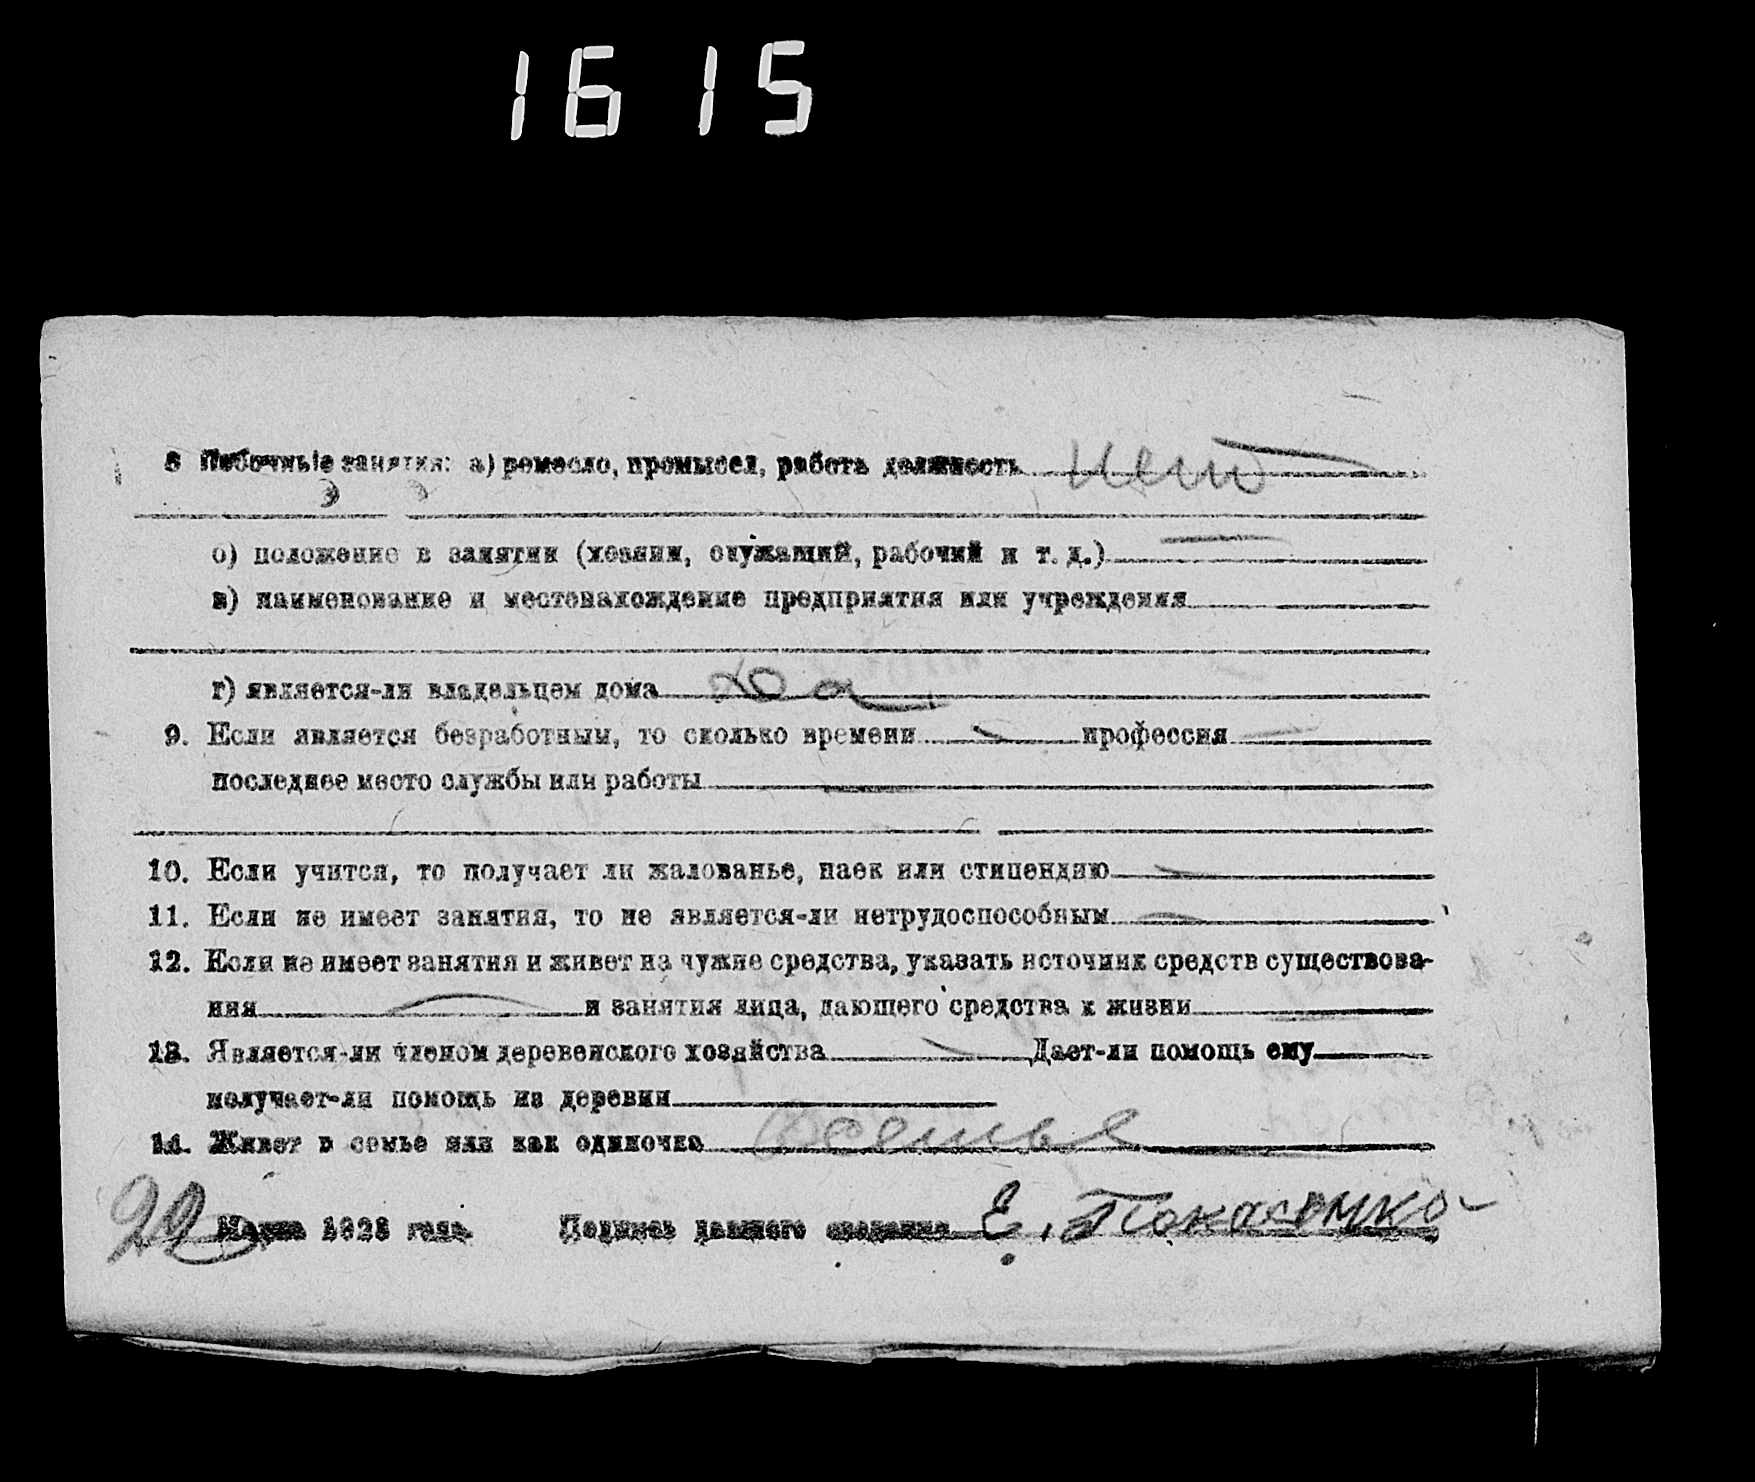 1615
8 Побочные занятия: а) ремесло, промысел, работа должность нет
о) положение в занятии (хозяин, служащий, рабочий и т. д.)
в) наименование и местонахождение предприятия или учреждения
г) является-ли владельцем дома да
9. Если является безработным, то сколько времени профессия
последнее место службы или работы
10. Если учится, то получает ли жалованье, паек или стипендию
11. Если не имеет занятия, то не является-ли нетрудоспособным
12. Если не имеет занятия и живет на чужие средства, указать источник средств существова-
ния и занятия лица, дающего средства к жизни
13. Является-ли членом деревенского хозяйства Дает-ли помощь ему
получает-ли помощь из деревни
14. Живет в семье или как одиночка
22 Марта 1923 года Подпись давшего сведения Е.